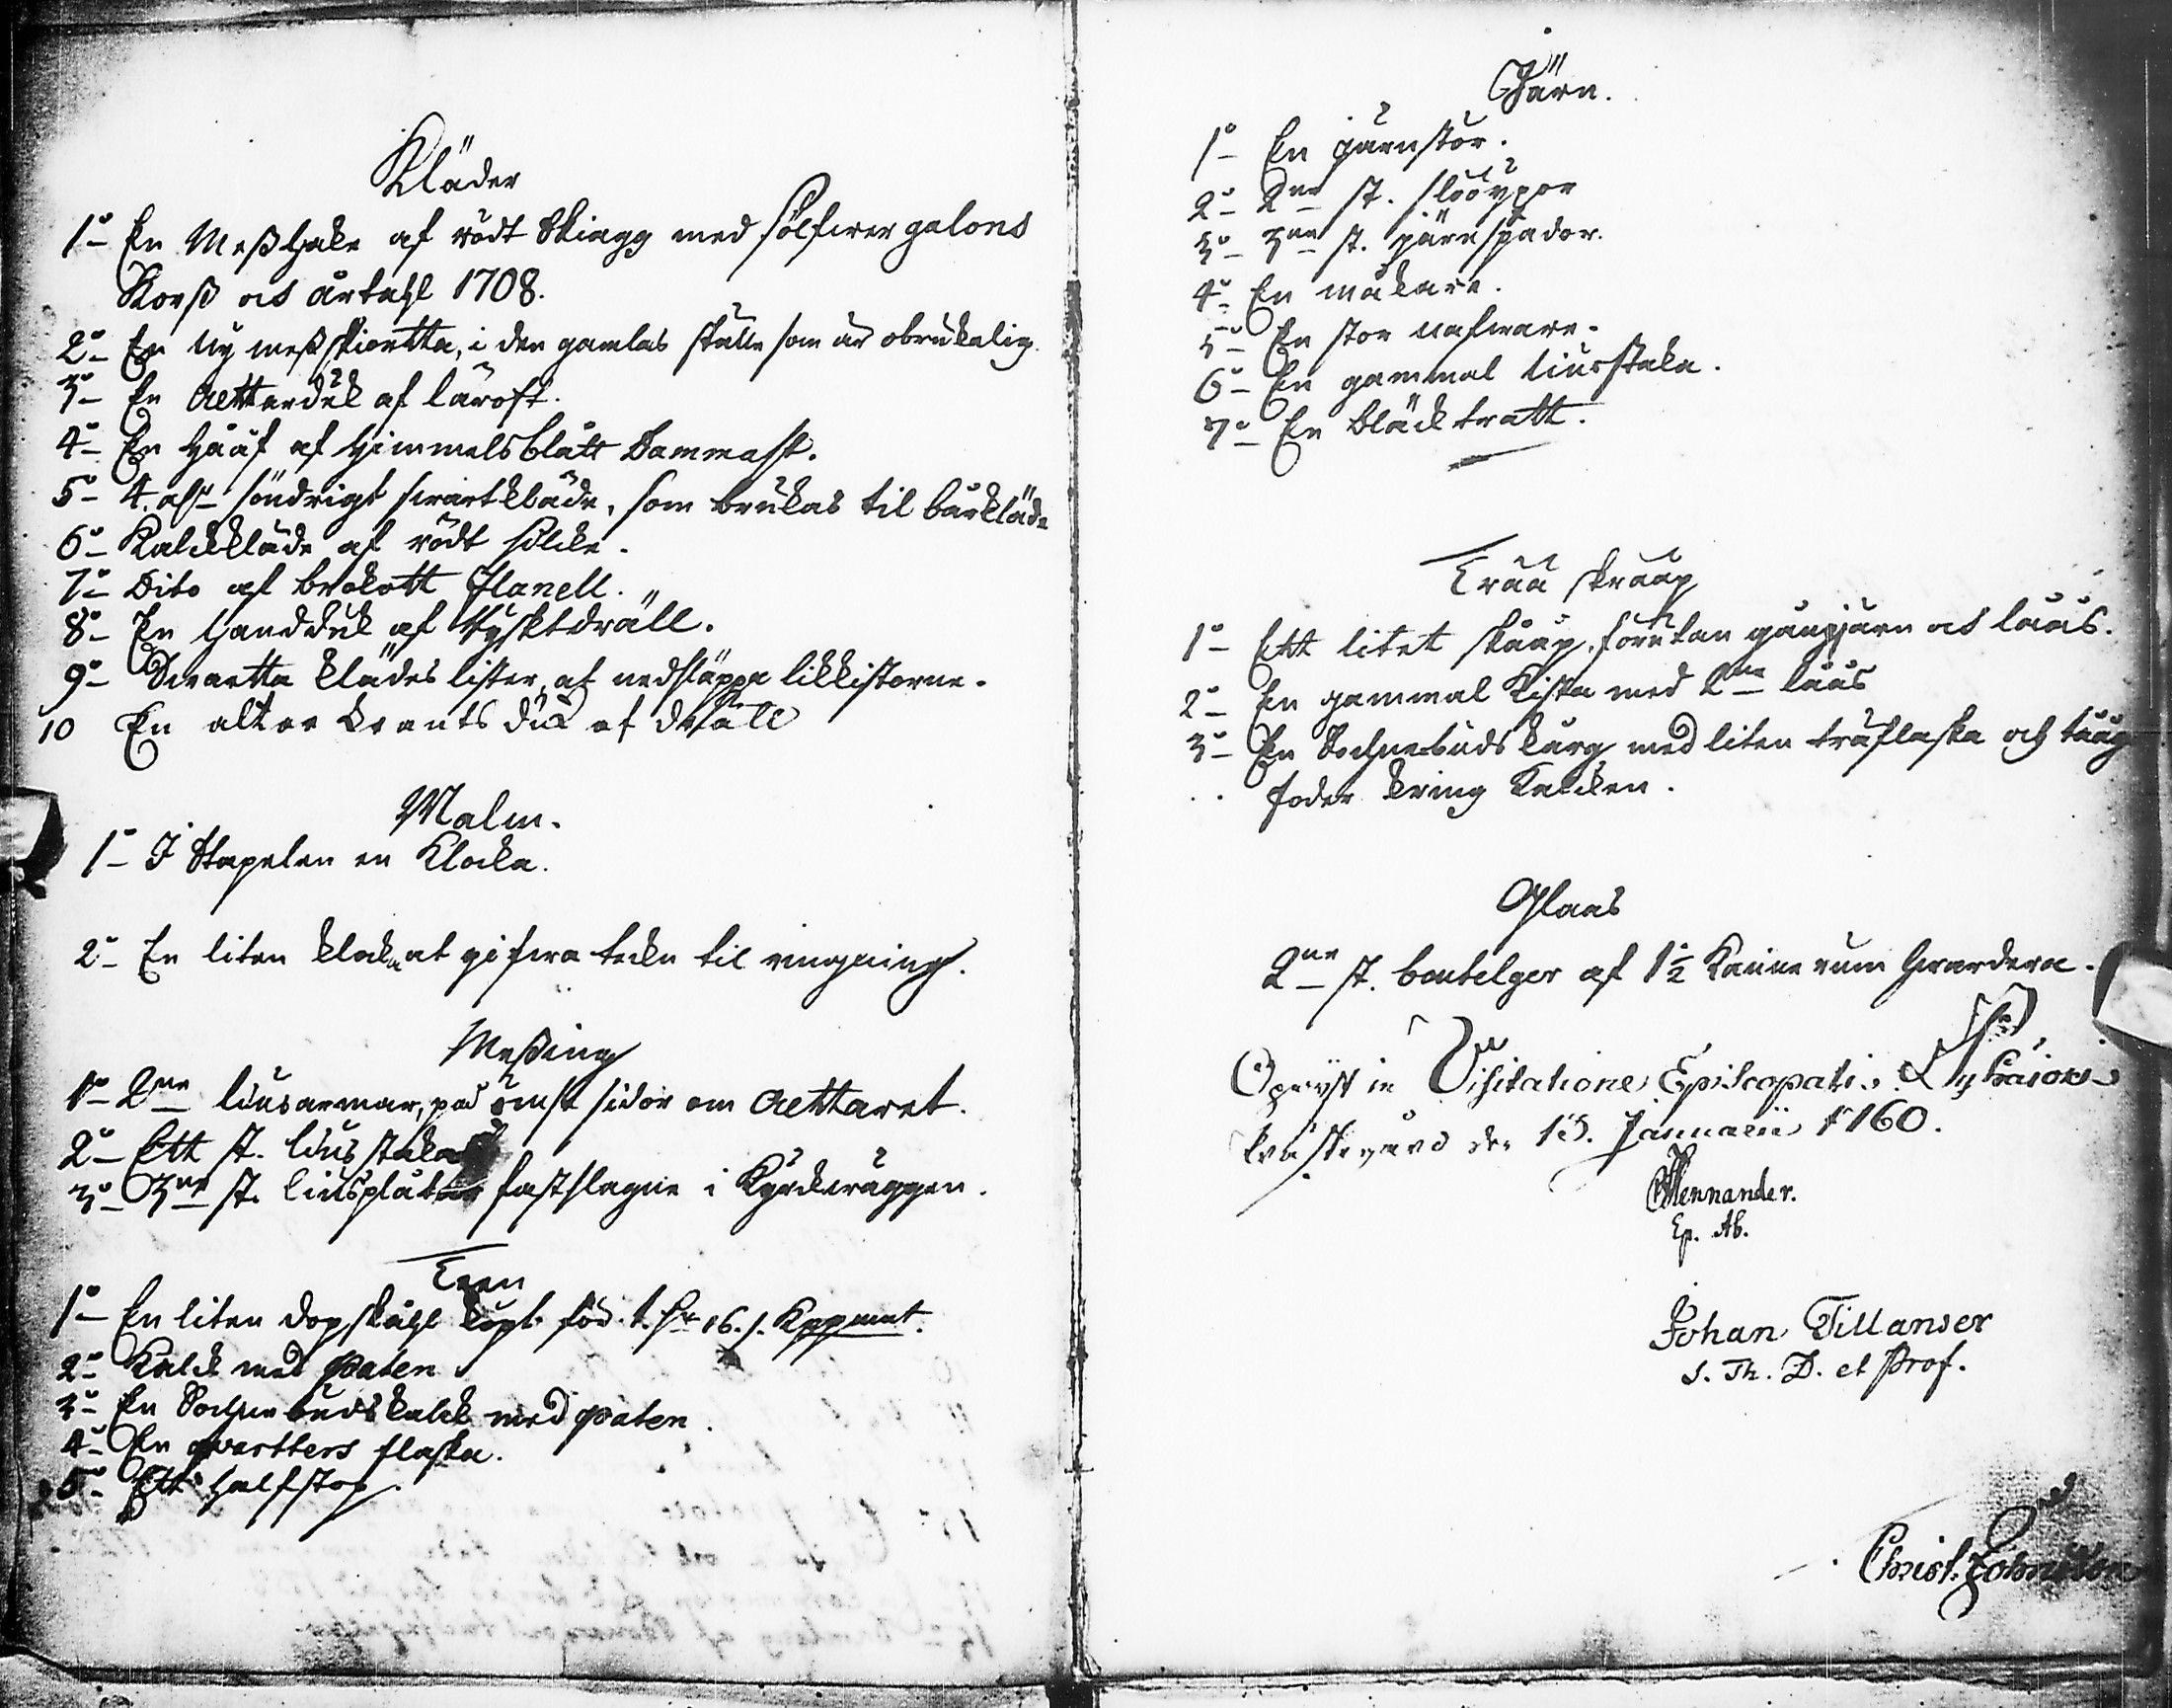 Kläder
1o En Messhake af rödt Skiagg med sölfwer galons
Korss och årtahl 1708.
2o En ny mess skiortta, i den gamlas ställe som är obrukelig.
3o En Altarduk af lärofft.
4o En Hååf af himmelsblått Dammask.
5o 4. aln söndrigt swart kläde, som brukas til bårkläde
6o Kalckkläde af rödt silcke.
7o Dito af brokott flanell.
8o En handduk af tyskt dräll.
9o Swartta klädes lister, at nedsläppa likkistorne.
10 En altar Krants duk af dräll
Malm.
1o I Stapelen en Klocka.
2o En liten klocka at gifwa tecken til ringning.
Messing
1o 2ne liusarmar, på ömse sidor om Altaret.
2o Ett st. lius staka
3o 3ne st. liusplåtar fastslagne i Kyrkiwäggen.
Tenn
1o En liten dopskåhl köpt för t. Sr 16. s. Kppmnt.
2o Kalck med paten
3o En Sochnebudskalck med paten.
4o En qvartters flaska.
5o Ett halfstop.
Järn.
1o En järnstör.
2o 2ne st.
3o 3ne st. järnspador.
4o En måkare.
5o En stor nafware.
6o En gammal liusstaka.
7o En bläck tratt.
Trää skrååp
1o Ett litet skååp, förutan gångjärn och låås.
2o En gammal Kista med 2ne låås
3o En Sochnebuds korg med liten träflaska och
foder kring Kalcken.
Glaas
2ne st. bouteilger af 1½ Kanne rum hwardera.
in Visitatione Episcopali i
d. Januarii 1760.
CFMennander.
Ep. Ab.
Johan Tillander
S. Th. D. et Prof.
Christ.